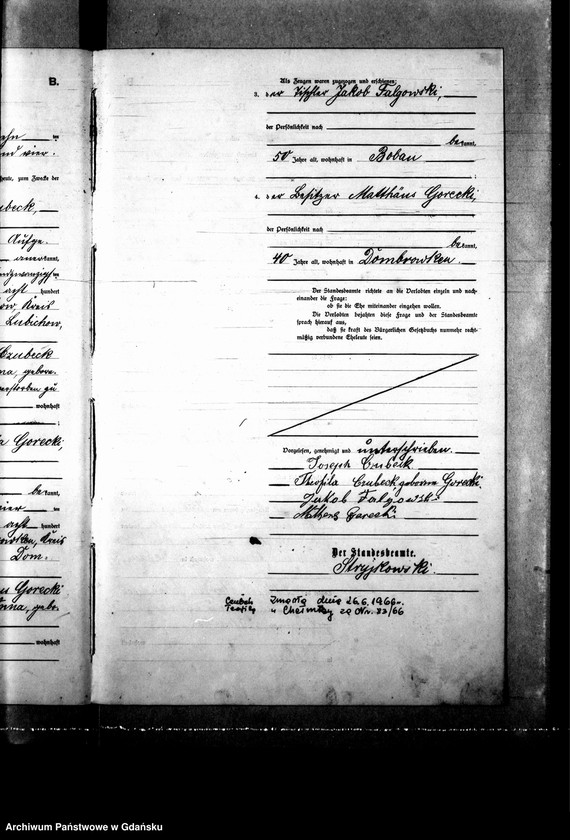 B.
Als Zeugen waren zugezogen und erschienen:
3. der Tischler Jakob Falgowski,
der Persönlichkeit nach
bekannt,
50 Jahre alt, wohnhaft in Bobau
;
4. der Besitzer Matthäus Gorecki,
der Persönlichkeit nach
bekannt,
40 Jahre alt, wohnhaft in Dombrowken
Der Standesbeamte richtete an die Verlobten einzeln und nach-
einander die Frage:
ob sie die Ehe miteinander eingehen wollen.
Die Verlobten bejahten diese Frage und der Standesbeamte
sprach hierauf aus,
daß sie kraft des Bürgerlichen Gesetzbuchs nunmehr recht-
mäßig verbundene Eheleute seien.
Vorgelesen, genehmigt und unterschrieben.
Joseph Czubeck
Theofila Czubeck geborene Gorecki.
Jakob Falgowski
Der Standesbeamte.
Stryjkowski.
Czubek Teofila zmarła dnia 26.6.1966 r.
w Chełmży za Nr. 83/66
und vier.
heute, zum Zwecke der
Czubeck,
anerkannt,
acht hundert
Kreis
Lubichow,
Czubeck
gebore-
verstorben zu
wohnhaft
;
Gorecki,
bekannt,
vier
acht hundert
Kreis
Dom.
Gorecki
wohnhaft
Archiwum Państwowe w Gdańsku